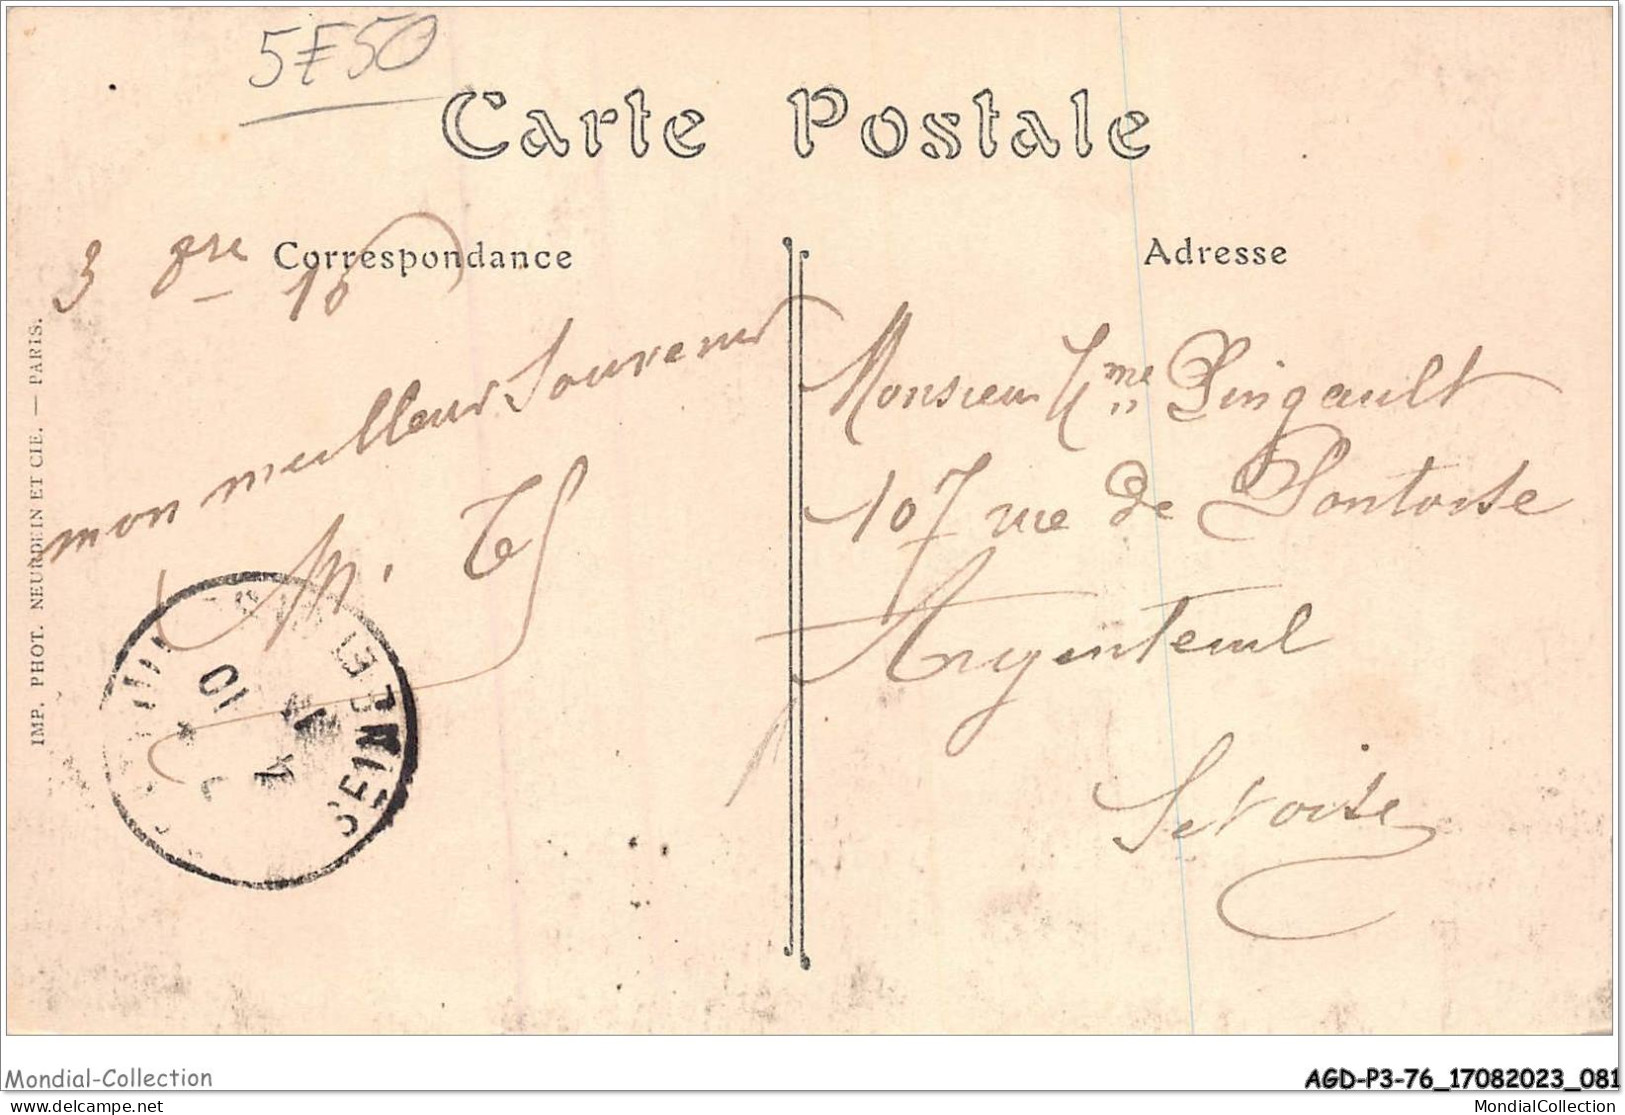 5F50
Carte Postale
Correspondance
Adresse
3 gre 15
mon meilleur Souvenir
Monsieur Mme Pingault
107 rue de Pontoise
Argenteuil
Setoise
10
SEINE
IMP. PHOT. NEURDEIN ET CIE. — PARIS.
Mondial-Collection
AGD-P3-76_17082023_081
delcampe.net
MondialCollection